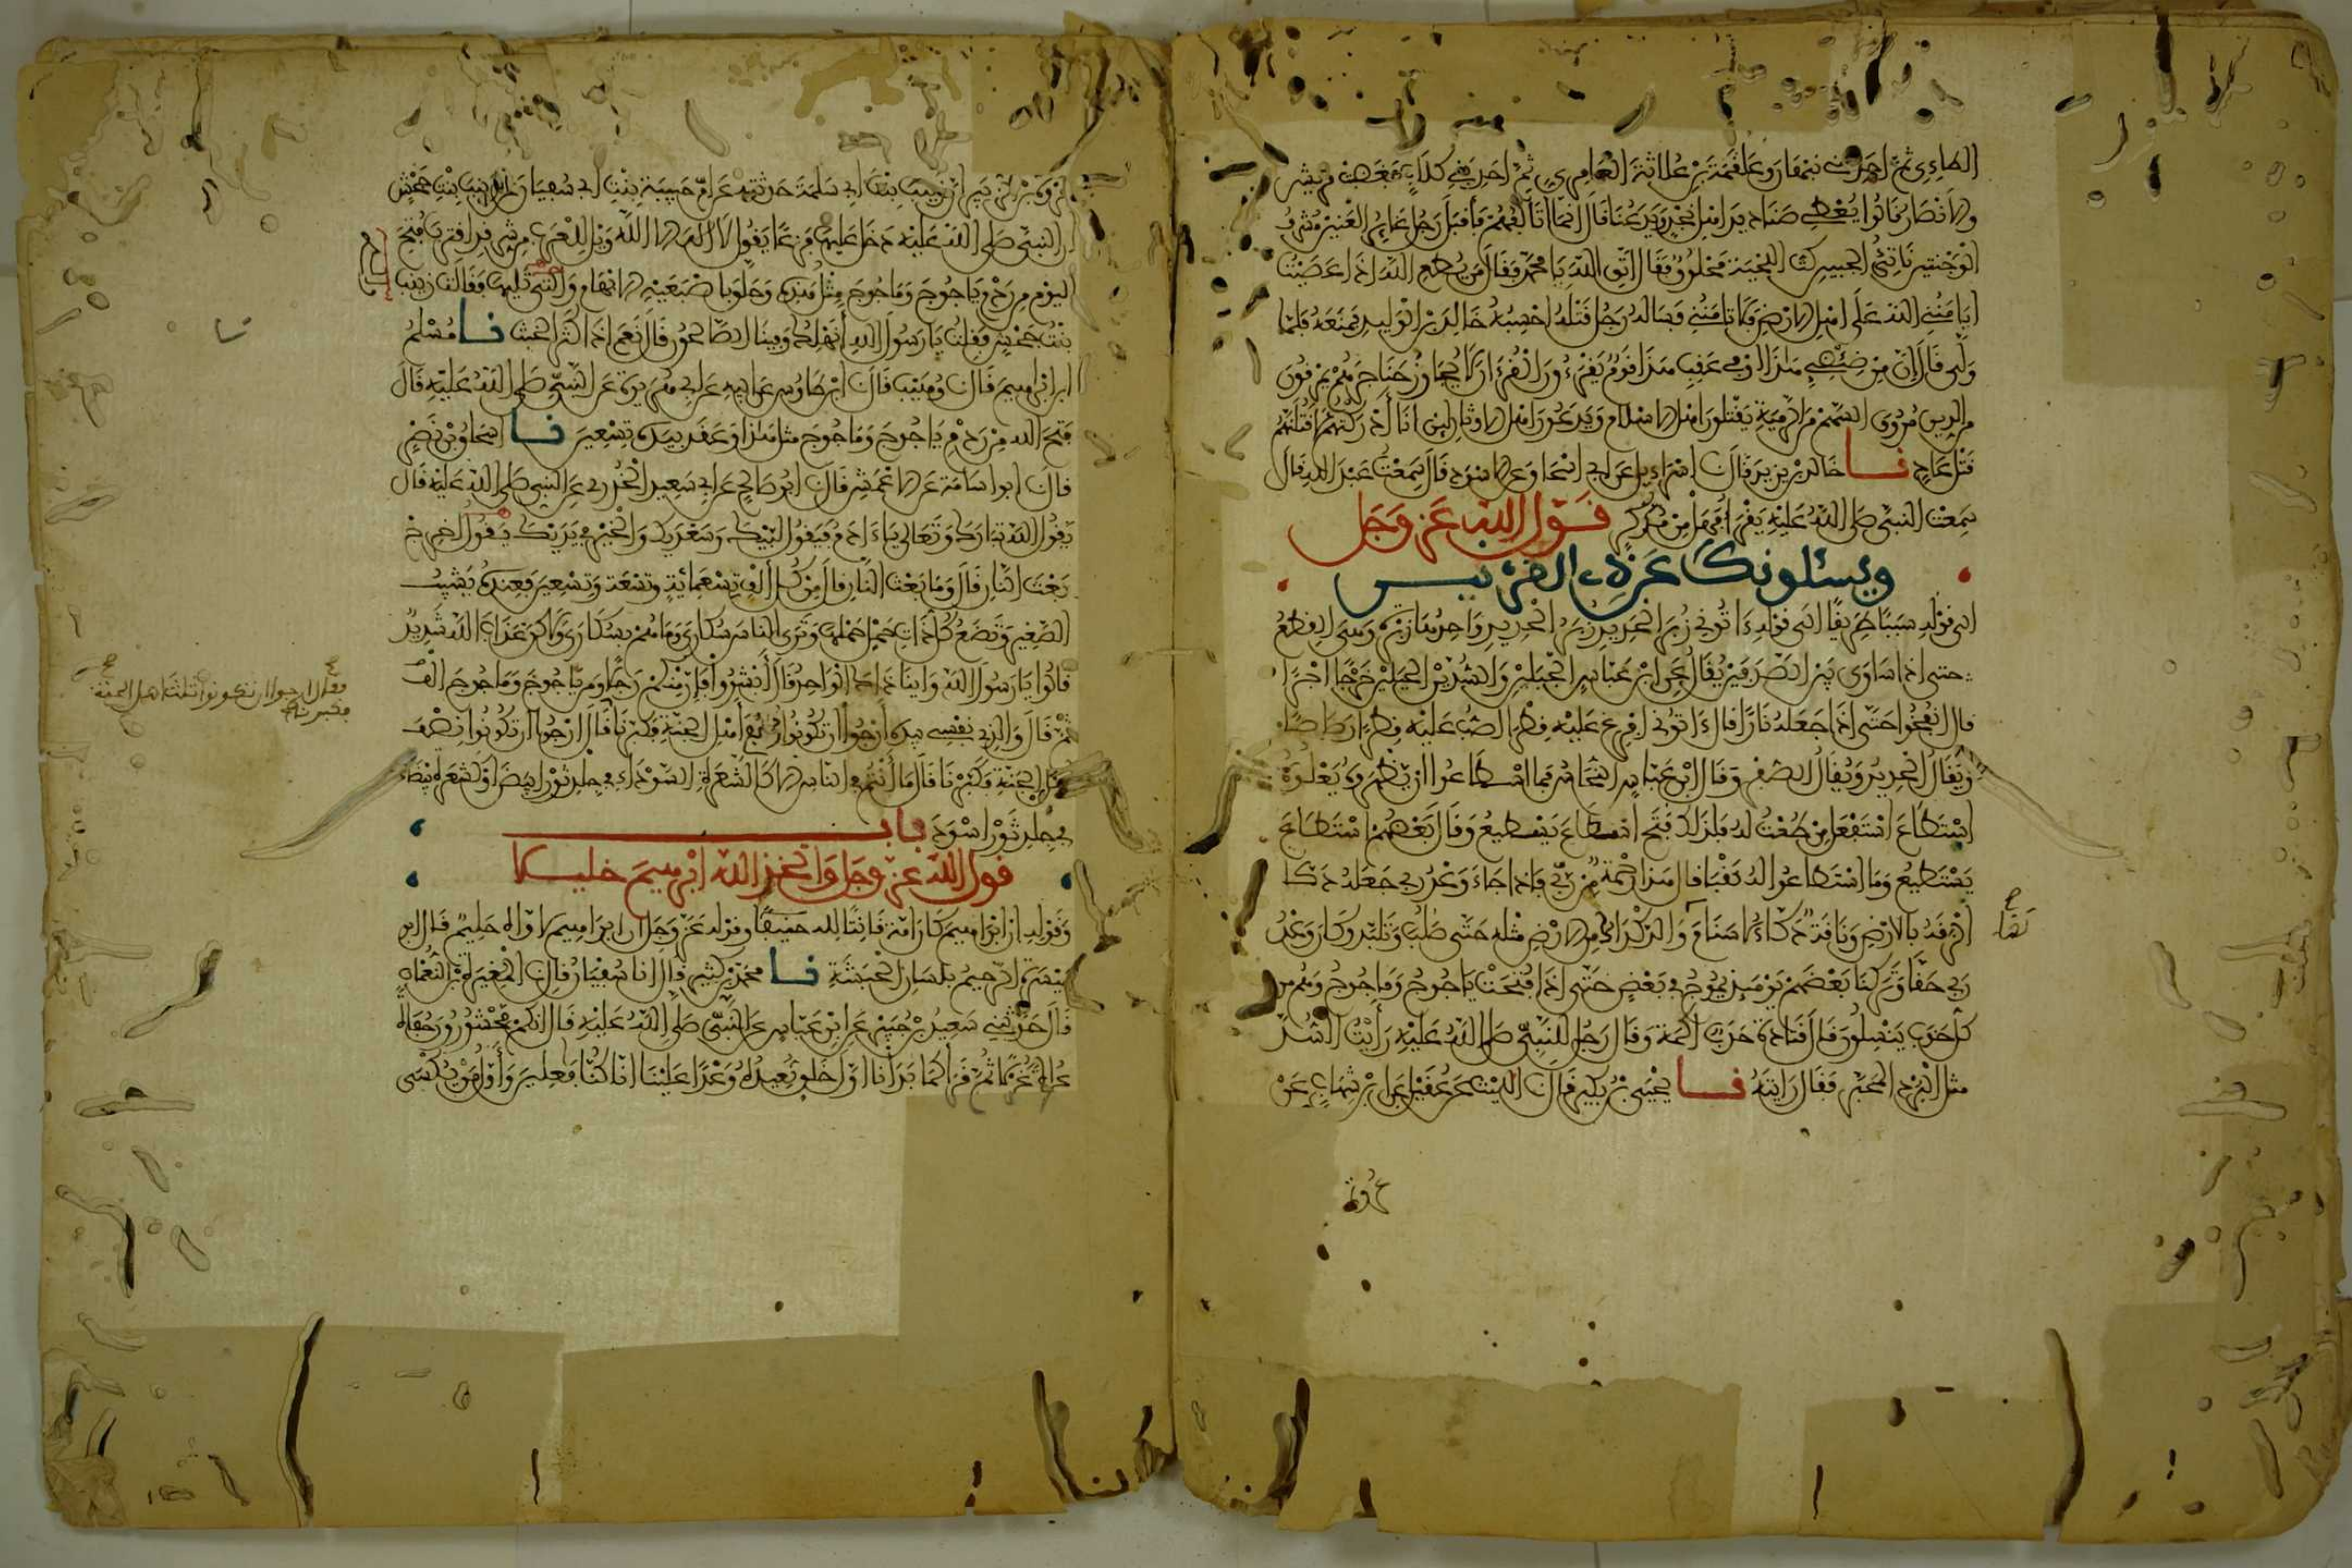 الطاءي ثم احد بني نبهان وعلقمة بن علاثة العامري ثم احد بني كلاب فغضبت قريش
والانصار فقالوا يعطي صناديد اهل نجد ويدعنا قال انما اتالفهم فاقبل رجل غاير العينين مشرف
الوجنتين ناتئ الجبين كث اللحية محلوق فقال اتق الله يا محمد فقال من يطع الله اذا عصيت
ايامنني الله على اهل الارض ولا تامنوني فساله رجل قتله احسبه خالد بن الوليد فمنعه فلما
ولى قال ان من ضئضئ هذا او في عقب هذا قوم يقرءون القرءان لا يجاوز حناجرهم يمرقون
من الدين مروق السهم من الرمية يقتلون اهل الاسلام ويدعون اهل الاوثان لئن انا ادركتهم لاقتلنهم
قتل عاد نا خالد بن يزيد قال نا اسراءيل عن ابي اسحاق عن الاسود قال سمعت عبد الله قال
سمعت النبي صلى الله عليه يقرا فهل من مدكر قول الله عز وجل
ويسئلونك عن ذي القرنين
الى قوله سببا طريقا الى قوله ءاتوني زبر الحديد زبر الحديد واحدها زبرة وهي القطع
حتى اذا ساوى بين الصدفين يقال عن ابن عباس الجبلين والسدين الجبلين خرجا اجرا
قال انفخوا حتى اذا جعله نارا قال ءاتوني افرغ عليه قطرا اصب عليه قطرا رصاصا
ويقال الحديد ويقال الصفر وقال ابن عباس النحاس فما اسطاعوا ان يظهروه يعلوه
استطاع استفعل من طعت له فلذلك فتح اسطاع يسطيع وقال بعضهم استطاع
يستطيع وما استطاعوا له نقبا قال هذا رحمة من ربي فاذا جاء وعد ربي جعله دكا
الزقه بالارض وناقة دكاء لا سنام والدكداك من الارض مثله حتى صلب وتلبد وكان وعد
ربي حقا وتركنا بعضهم يومئذ يموج في بعض حتى اذا فتحت ياجوج وماجوج وهم من
كل حدب ينسلون قال قتادة حدب اكمة وقال رجل للنبي صلى الله عليه رايت السد
مثل البرد المحبر فقال رايته نا يحيى بن بكير قال نا الليث عن عقيل عن ابن شهاب عن
عروة
بن الزبير ان زينب بنت ابي سلمة حدثته عن ام حبيبة بنت ابي سفيان عن زينب بنت جحش
ان النبي صلى الله عليه دخل عليها فزعا يقول لا اله الا الله ويل للعرب من شر قد اقترب فتح
اليوم من ردم ياجوج وماجوج مثل هذه وحلق باصبعيه الابهام والتي تليها فقالت زينب
بنت جحش فقلت يا رسول الله انهلك وفينا الصالحون قال نعم اذا كثر الخبث نا مسلم
بن ابراهيم قال نا وهيب قال نا ابن طاوس عن ابيه عن ابي هريرة عن النبي صلى الله عليه قال
فتح الله من ردم ياجوج وماجوج مثل هذا وعقد بيده تسعين نا اسحاق بن نصر
قال نا ابو اسامة عن الاعمش قال نا ابو صالح عن ابي سعيد الخدري عن النبي صلى الله عليه قال
يقول الله تبارك وتعالى يا ءادم فيقول لبيك وسعديك والخير في يديك يقول اخرج
بعث النار قال وما بعث النار قال من كل الف تسعمائة وتسعة وتسعين فعنده يشيب
الصغير وتضع كل ذات حمل حملها وترى الناس سكارى وما هم بسكارى ولكن عذاب الله شديد
قالوا يا رسول الله واينا ذلك الواحد قال ابشروا فان منكم رجلا ومن ياجوج وماجوج الف
ثم قال والذي نفسي بيده ارجوا ان تكونوا ربع اهل الجنة فكبرنا قال ارجوا ان تكونوا نصف
اهل الجنة فكبرنا قال ما انتم في الناس الا كالشعرة السوداء في جلد ثور ابيض او كشعرة بيضاء
في جلد ثور اسود باب
قول الله عز وجل واتخذ الله ابرهيم خليلا
وقوله ان ابراهيم كان امة قانتا لله حنيفا وقوله عز وجل ان ابراهيم لاواه حليم قال ابو
ميسرة الرحيم بلسان الحبشة نا محمد بن كثير قال انا سفيان قال نا المغيرة بن النعمان
قال حدثني سعيد بن جبير عن ابن عباس عن النبي صلى الله عليه قال انكم محشورون حفاة
عراة غرلا ثم قرا كما بدانا اول خلق نعيده وعدا علينا انا كنا فاعلين واول من يكسى
فقال ارجوا ان تكونوا ثلث اهل الجنة
فكبرنا